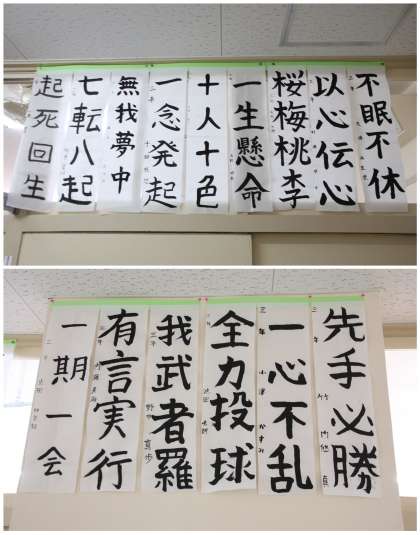 不眠不休
以心伝心
桜梅桃李
一生懸命
十人十色
一念発起
無我夢中
七転八起
起死回生
先手必勝
三年
一心不乱
三年
全力投球
我武者羅
有言実行
一期一会